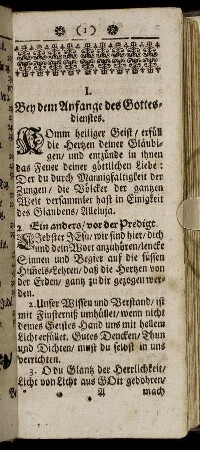 (1)
I.
Bey dem Anfange des Gottes-
dienstes.
KOmm heiliger Geist/ erfüll
die Hertzen deiner Gläubi-
gen/ und entzünde in ihnen
das Feuer deiner göttlichen Liebe:
Der du durch Mannigfaltigkeit der
Zungen/ die Völcker der gantzen
Welt versammlet hast in Einigkeit
des Glaubens/ Alleluja.
2. Ein anders/ vor der Predigt.
LJebster JEsu/ wir sind hier/ dich
und dein Wort anzuhören/lencke
Sinnen und Begier auf die süssen
Him̃els-Lehren/ daß die Hertzen von
der Erden/ gantz zu dir gezogen wer-
den.
2. Unser Wissen und Verstand/ ist
mit Finsterniß umhüllet/ wenn nicht
deines Geistes Hand uns mit hellem
Licht erfüllet. Gutes Dencken/ Thun
und Dichten/ must du selbst in uns
verrichten.
3. O du Glantz der Herrlichkeit/
Licht von Licht aus GOtt gebohren/
A mach